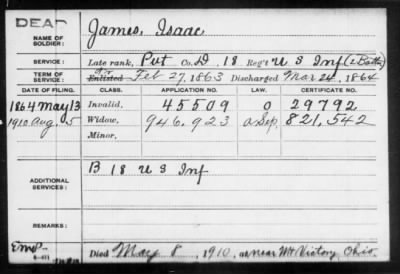 DEAD
NAME OF SOLDIER: James, Isaac
SERVICE: Late rank, Pvt Co. D, 18 Reg't U S Inf (2 Batt)
TERM OF SERVICE: Enlisted Feb 27, 1863 Discharged Mar 24, 1864
DATE OF FILING. CLASS. APPLICATION NO. LAW. CERTIFICATE NO.
1864 May 13 Invalid, 45509 O 29792
1910 Aug. 5 Widow, 946,923 a Sep. 821,542
Minor,
ADDITIONAL SERVICES: B 18 U S Inf
REMARKS:
Died May 8, 1910, at near Mt Victory Ohio.